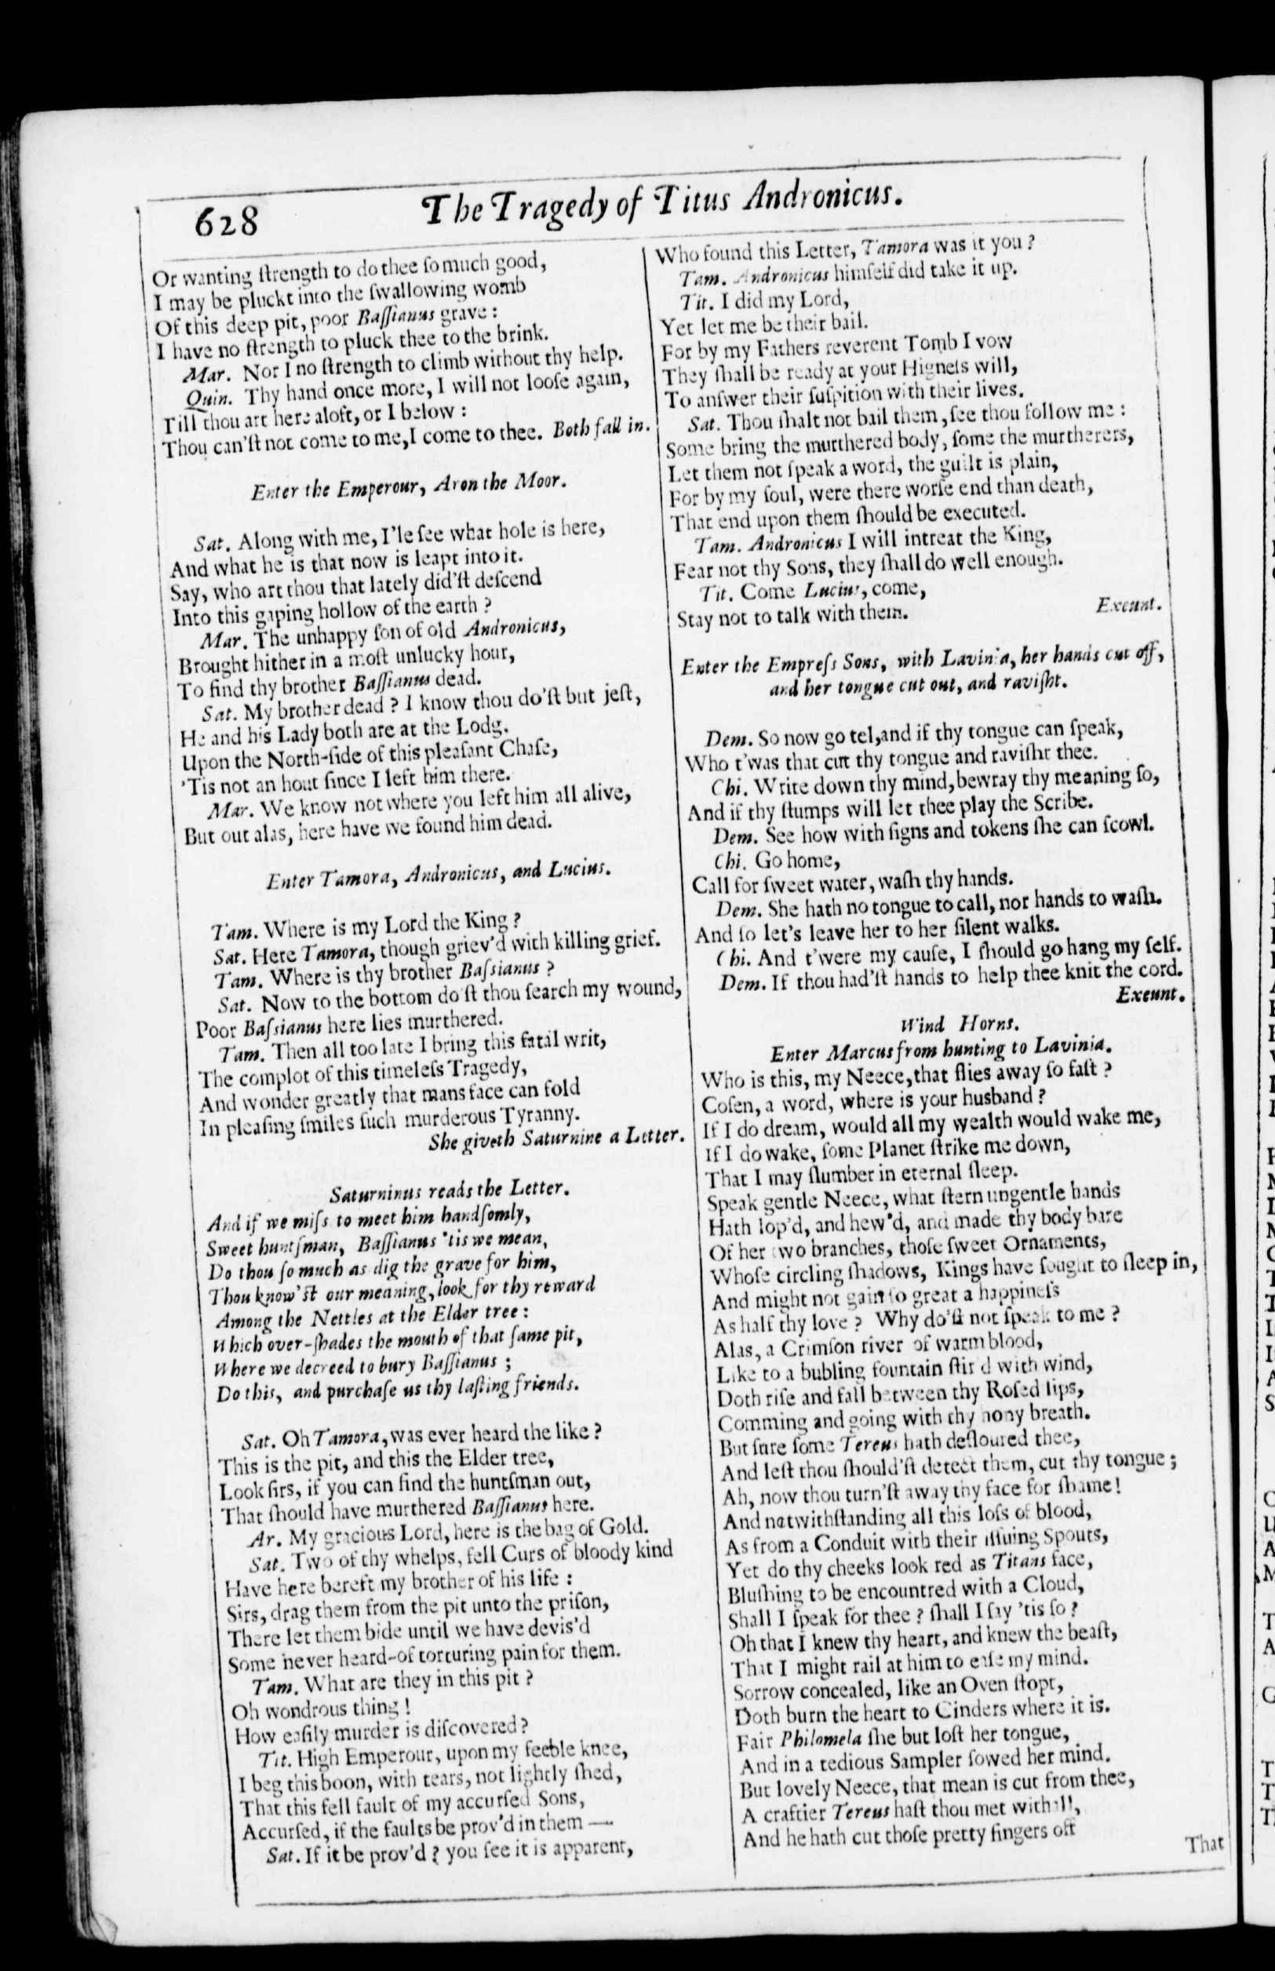 628
The Tragedy of Titus Andronicus.
Or wanting ſtrength to do thee ſo much good,
I may be pluckt into the ſwallowing womb
Of this deep pit, poor Baſſianus grave :
I have no ſtrength to pluck thee to the brink.
Mar. Nor I no ſtrength to climb without thy help.
Quin. Thy hand once more, I will not looſe again,
Till thou art here aloft, or I below :
Thou can'ſt not come to me, I come to thee. Both fall in.
Enter the Emperour, Aron the Moor.
Sat. Along with me, I'le ſee what hole is here,
And what he is that now is leapt into it.
Say, who art thou that lately did'ſt deſcend
Into this gaping hollow of the earth ?
Mar. The unhappy ſon of old Andronicus,
Brought hither in a moſt unlucky hour,
To find thy brother Baſſianus dead.
Sat. My brother dead ? I know thou do'ſt but jeſt,
He and his Lady both are at the Lodg.
Upon the North-ſide of this pleaſant Chaſe,
'Tis not an hout ſince I left him there.
Mar. We know not where you left him all alive,
But out alas, here have we found him dead.
Enter Tamora, Andronicus, and Lucius.
Tam. Where is my Lord the King ?
Sat. Here Tamora, though griev'd with killing grief.
Tam. Where is thy brother Baſsianus ?
Sat. Now to the bottom do'ſt thou ſearch my wound,
Poor Baſsianus here lies murthered.
Tam. Then all too late I bring this fatal writ,
The complot of this timeleſs Tragedy,
And wonder greatly that mans face can fold
In pleaſing ſmiles ſuch murderous Tyranny.
She giveth Saturnine a Letter.
Saturninus reads the Letter.
And if we miſs to meet him handſomly,
Sweet huntſman, Baſſianus 'tis we mean,
Do thou ſo much as dig the grave for him,
Thou know'ſt our meaning, look for thy reward
Among the Nettles at the Elder tree :
Which over-ſhades the mouth of that ſame pit,
Where we decreed to bury Baſſianus ;
Do this, and purchaſe us thy laſting friends.
Sat. Oh Tamora, was ever heard the like ?
This is the pit, and this the Elder tree,
Look ſirs, if you can find the huntſman out,
That ſhould have murthered Baſſianus here.
Ar. My gracious Lord, here is the bag of Gold.
Sat. Two of thy whelps, fell Curs of bloody kind
Have here bereft my brother of his life :
Sirs, drag them from the pit unto the priſon,
There let them bide until we have devis'd
Some never heard-of torturing pain for them.
Tam. What are they in this pit ?
Oh wondrous thing !
How eaſily murder is diſcovered ?
Tit. High Emperour, upon my feeble knee,
I beg this boon, with tears, not lightly ſhed,
That this fell fault of my accurſed Sons,
Accurſed, if the faults be prov'd in them —
Sat. If it be prov'd ? you ſee it is apparent,
Who found this Letter, Tamora was it you ?
Tam. Andronicus himſelf did take it up.
Tit. I did my Lord,
Yet let me be their bail.
For by my Fathers reverent Tomb I vow
They ſhall be ready at your Highneſs will,
To anſwer their ſuſpition with their lives.
Sat. Thou ſhalt not bail them, ſee thou follow me :
Some bring the murthered body, ſome the murtherers,
Let them not ſpeak a word, the guilt is plain,
For by my ſoul, were there worſe end than death,
That end upon them ſhould be executed.
Tam. Andronicus I will intreat the King,
Fear not thy Sons, they ſhall do well enough.
Tit. Come Lucius, come,
Stay not to talk with them. Exeunt.
Enter the Empreſs Sons, with Lavinia, her hands cut off,
and her tongue cut out, and raviſht.
Dem. So now go tel, and if thy tongue can ſpeak,
Who t'was that cut thy tongue and raviſht thee.
Chi. Write down thy mind, bewray thy meaning ſo,
And if thy ſtumps will let thee play the Scribe.
Dem. See how with ſigns and tokens ſhe can ſcowl.
Chi. Go home,
Call for ſweet water, waſh thy hands.
Dem. She hath no tongue to call, nor hands to waſh.
And ſo let's leave her to her ſilent walks.
Chi. And t'were my cauſe, I ſhould go hang my ſelf.
Dem. If thou had'ſt hands to help thee knit the cord.
Exeunt.
Wind Horns.
Enter Marcus from hunting to Lavinia.
Who is this, my Neece, that flies away ſo faſt ?
Coſen, a word, where is your husband ?
If I do dream, would all my wealth would wake me,
If I do wake, ſome Planet ſtrike me down,
That I may ſlumber in eternal ſleep.
Speak gentle Neece, what ſtern ungentle hands
Hath lop'd, and hew'd, and made thy body bare
Of her two branches, thoſe ſweet Ornaments,
Whoſe circling ſhadows, Kings have ſought to ſleep in,
And might not gain ſo great a happineſs
As half thy love ? Why do'ſt not ſpeak to me ?
Alas, a Crimſon river of warm blood,
Like to a bubling fountain ſtir'd with wind,
Doth riſe and fall between thy Roſed lips,
Comming and going with thy hony breath.
But ſure ſome Tereus hath defloured thee,
And leſt thou ſhould'ſt detect them, cut thy tongue ;
Ah, now thou turn'ſt away thy face for ſhame !
And notwithſtanding all this loſs of blood,
As from a Conduit with their iſſuing Spouts,
Yet do thy cheeks look red as Titans face,
Bluſhing to be encountred with a Cloud,
Shall I ſpeak for thee ? ſhall I ſay 'tis ſo ?
Oh that I knew thy heart, and knew the beaſt,
That I might rail at him to eaſe my mind.
Sorrow concealed, like an Oven ſtopt,
Doth burn the heart to Cinders where it is.
Fair Philomela ſhe but loſt her tongue,
And in a tedious Sampler ſowed her mind.
But lovely Neece, that mean is cut from thee,
A craftier Tereus haſt thou met withall,
And he hath cut thoſe pretty fingers off
That